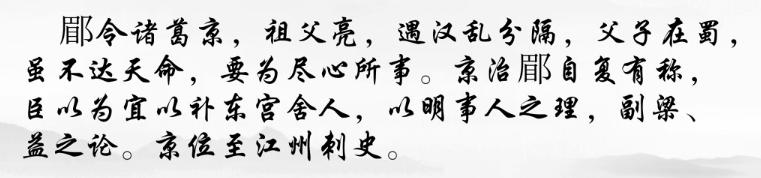 郿令诸葛京，祖父亮，遇汉乱分隔，父子在蜀，
虽不达天命，要为尽心所事。京治郿自复有称，
臣以为宜以补东宫舍人，以明事人之理，副梁、
益之论。京位至江州刺史。